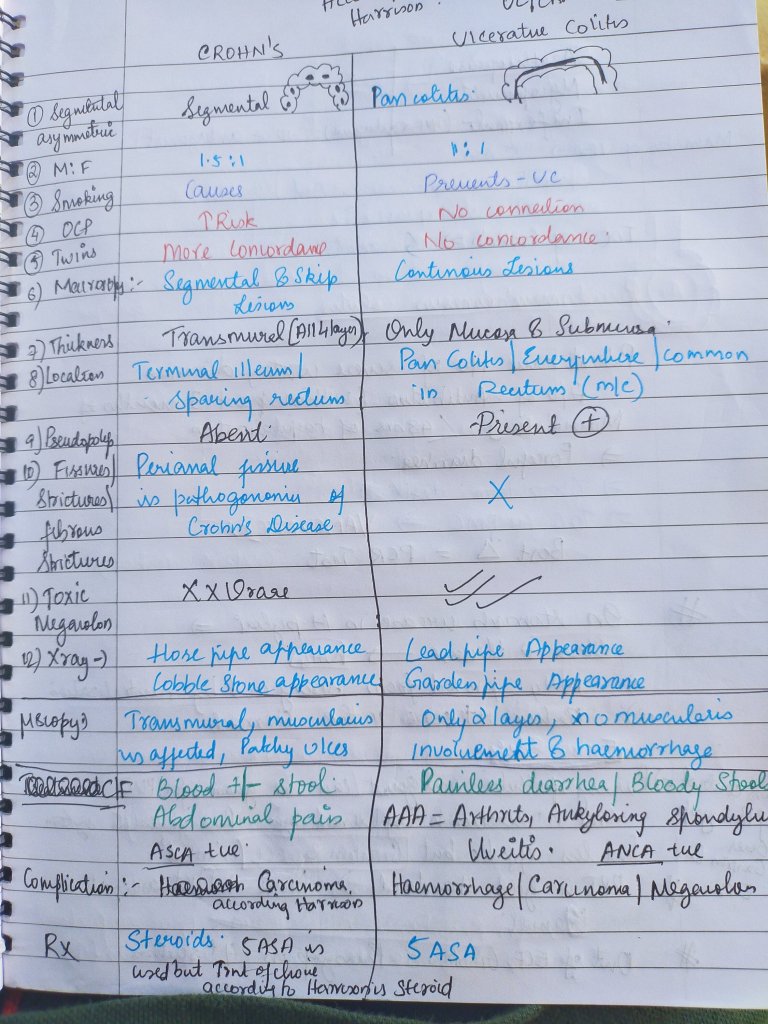 Harrison.
CROHN'S Ulcerative Colitis
① Segmental asymmetric Segmental Pancolitis.
② M:F 1.5:1 1:1
③ Smoking Causes Prevents - UC
④ OCP ↑Risk No connection
⑤ Twins More Concordance No concordance.
6) Macroscopy:- Segmental & Skip Lesions Continous Lesions
7) Thickness Transmural [All 4 layer] Only Mucosa & Submucosa.
8) Location Terminal illeum / Pan Colitis / Everywhere / common
sparing rectum in Rectum (m/c)
9) Pseudopolyp Absent. Present ⊕
10) Fissures/ Perianal fissure
Strictures/ is pathogonomic of X
fibrous Crohn's Disease
Strictures
11) Toxic XX Vrare ✓✓✓
Megacolon
12) Xray → Hose pipe appearance Lead pipe Appearance
Cobble Stone appearance Garden pipe Appearance
μscopy Transmural, muscularis Only 2 layer, no muscularis
is affected, Patchy Ulces involvement & haemorrhage
CF Blood +/- stool. Painless diarrhea / Bloody Stool
Abdominal pain AAA = Arthrits, Ankylosing Spondylu
ASCA +ve. Uveitis. ANCA +ve
Complication:- Carcinoma. Haemorrhage / Carcinoma / Megacolon
according Harrison
Rx Steroids. 5ASA is 5ASA
used but Tmt of choice
according to Harrison is Steroid